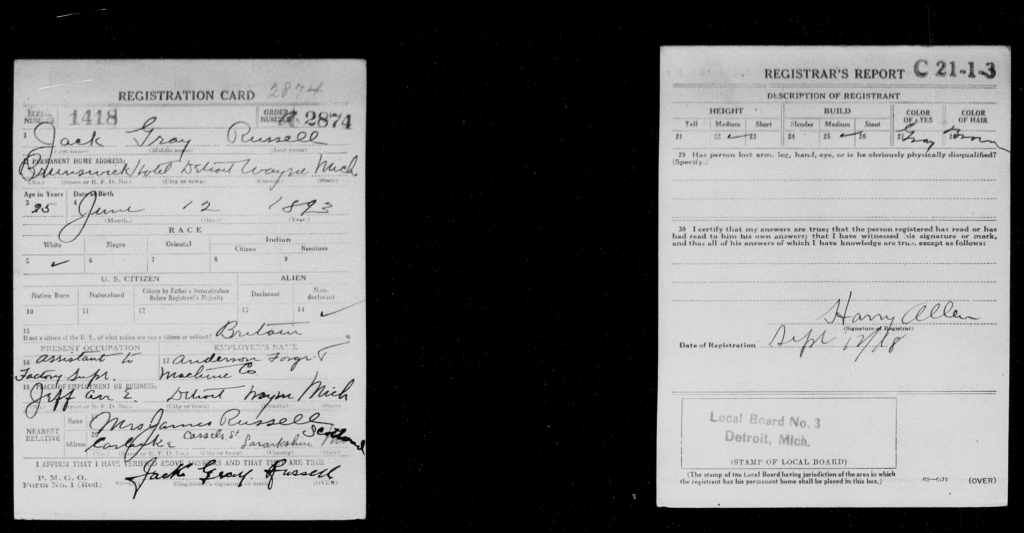 REGISTRATION CARD 2874
SERIAL NUMBER 1418 ORDER NUMBER 2874
1 Jack Gray Russell
(First name) (Middle name) (Last name)
2 PERMANENT HOME ADDRESS:
Brunswick Hotel Detroit Wayne Mich
(No.) (Street or R. F. D. No.) (City or town) (County) (State)
Age in Years Date of Birth
3 25 4 June 12 1893
(Month.) (Day.) (Year.)
RACE
White Negro Oriental Indian
Citizen Noncitizen
5 ✓ 6 7 8 9
U. S. CITIZEN ALIEN
Native Born Naturalized Citizen by Father's Naturalization Before Registrant's Majority Declarant Non-declarant
10 11 12 13 14 ✓
15 Britain
If not a citizen of the U. S., of what nation are you a citizen or subject?
PRESENT OCCUPATION EMPLOYER'S NAME
16 assistant to 17 Anderson Forge &
Factory Supt. Machine Co
18 PLACE OF EMPLOYMENT OR BUSINESS:
Jeff ave E. Detroit Wayne Mich
(No.) (Street or R. F. D. No.) (City or town) (County) (State)
NEAREST RELATIVE Name 19 Mrs James Russell
Address 20 Carluke Cassels St Lanarkshire Scotland
(No.) (Street or R. F. D. No.) (City or town) (County) (State)
I AFFIRM THAT I HAVE VERIFIED ABOVE ANSWERS AND THAT THEY ARE TRUE
P. M. G. O.
Form No. 1 (Red) Jack Gray Russell
(Registrant's signature or mark) (OVER)
REGISTRAR'S REPORT C 21-1-3
DESCRIPTION OF REGISTRANT
HEIGHT BUILD COLOR OF EYES COLOR OF HAIR
Tall Medium Short Slender Medium Stout
21 22 ✓ 23 24 25 ✓ 26 27 Gray
29 Has person lost arm, leg, hand, eye, or is he obviously physically disqualified?
(Specify.)
30 I certify that my answers are true; that the person registered has read or has
had read to him his own answers; that I have witnessed his signature or mark,
and that all of his answers of which I have knowledge are true, except as follows:
Harry Allen
(Signature of Registrar)
Date of Registration Sept 12/18
Local Board No. 3
Detroit, Mich.
(STAMP OF LOCAL BOARD)
(The stamp of the Local Board having jurisdiction of the area in which
the registrant has his permanent home shall be placed in this box.)
(OVER)